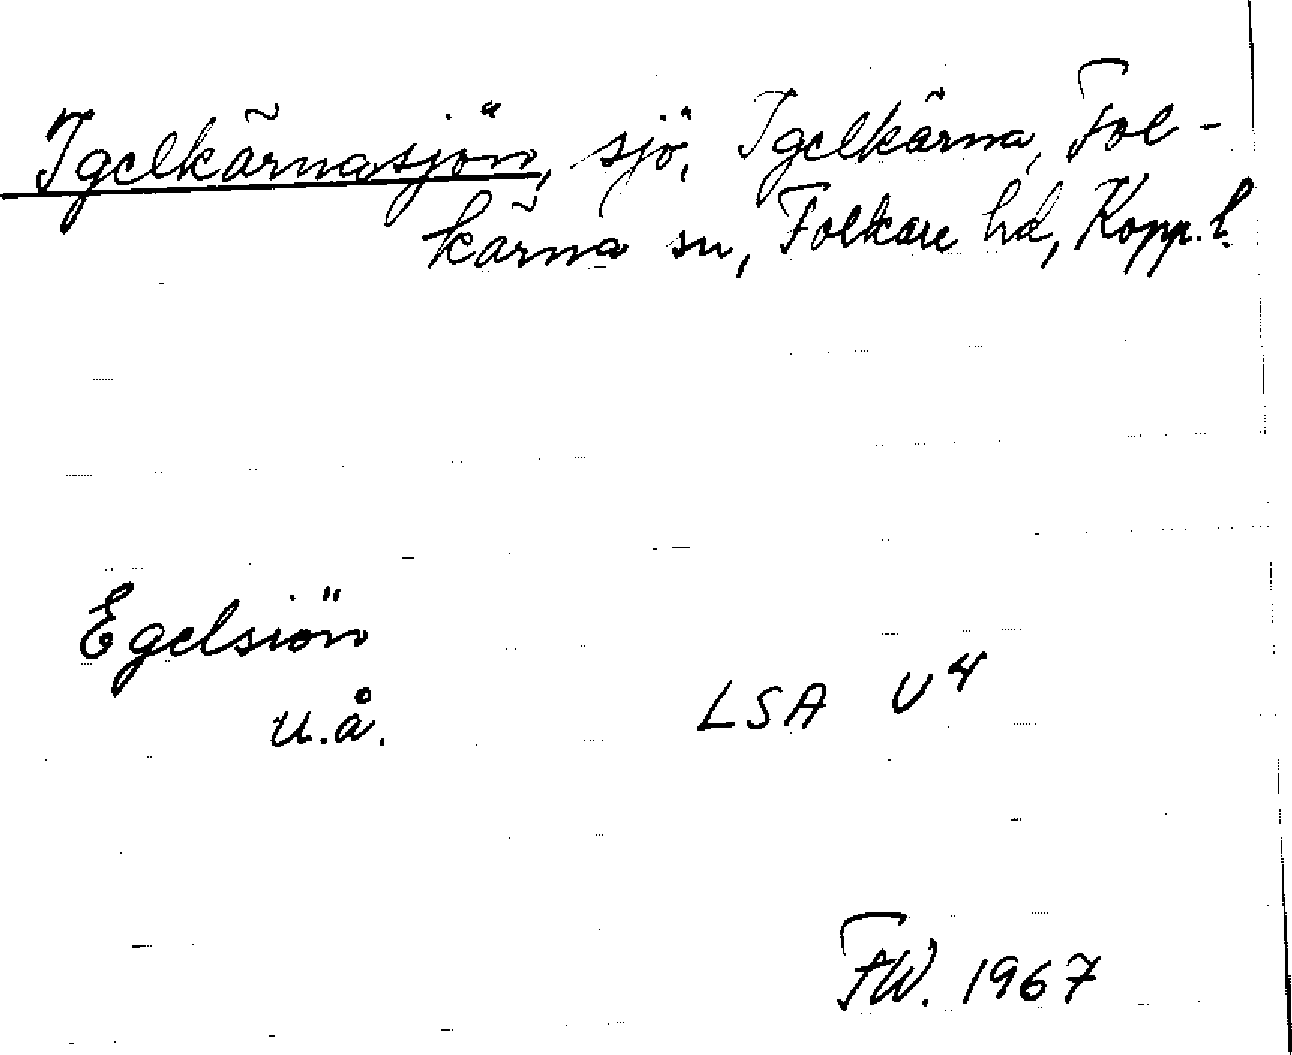 Igelkärnasjön, sjö, Igelkärna, Fol-
kärna sn, Folkare hd, Kopp. l.
Egelsiön
u.å. LSA U4
F.W. 1967